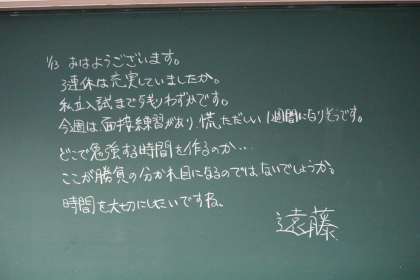 1/13 おはようございます。
3連休は充実していましたか。
私立入試まで残りわずかです。
今週は面接練習があり、慌ただしい1週間になりそうです。
どこで勉強する時間を作るのか…
ここが勝負の分かれ目になるのではないでしょうか。
時間を大切にしたいですね。
遠藤